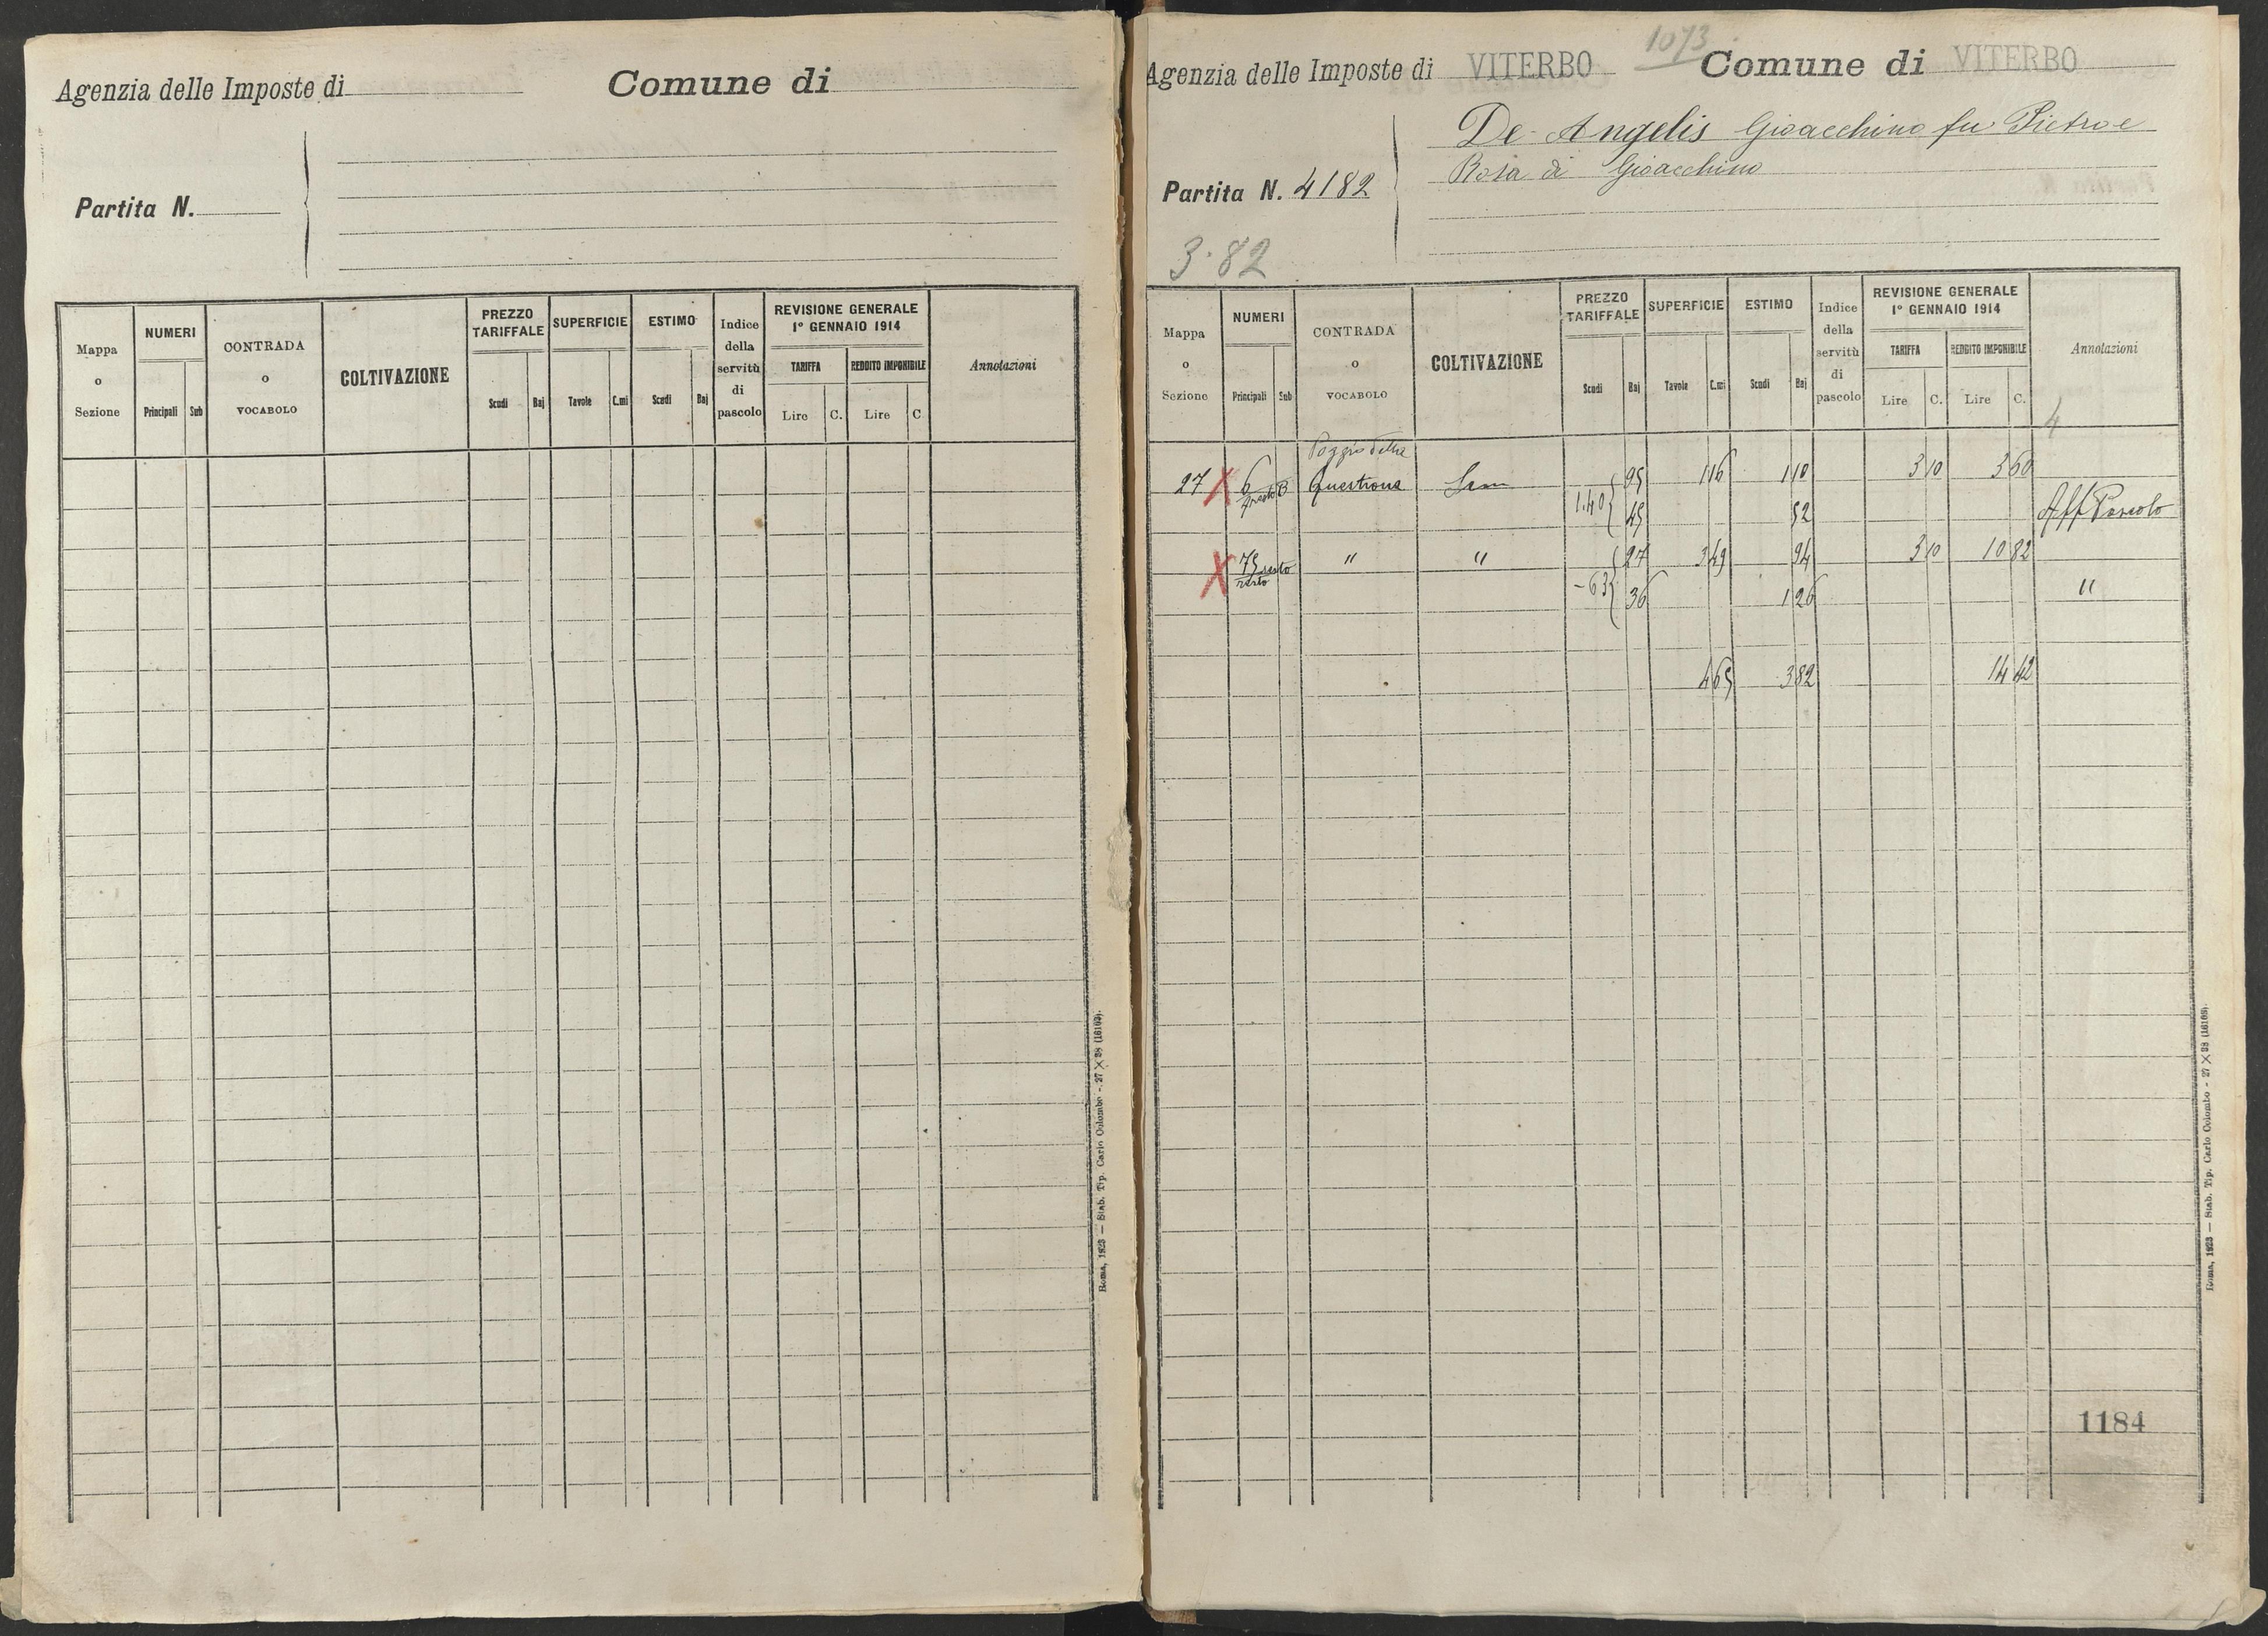 Agenzia delle Imposte di
Comune di
Partita N.
Mappa o Sezione
NUMERI
Principali Sub
CONTRADA o VOCABOLO
COLTIVAZIONE
PREZZO TARIFFALE
Scudi Baj
SUPERFICIE
Tavole C.mi
ESTIMO
Scudi Baj
Indice della servitù di pascolo
REVISIONE GENERALE
1° GENNAIO 1914
TARIFFA
Lire C.
REDDITO IMPONIBILE
Lire C
Annotazioni
Roma, 1923 — Stab. Tip. Carlo Colombo - 27 X 38 (16169).
1073
Agenzia delle Imposte di VITERBO
Comune di VITERBO
De Angelis Gioacchino fu Pietro e
Rosa di Gioacchino
Partita N. 4182
3.82
Mappa o Sezione
NUMERI
Principali Sub
CONTRADA o VOCABOLO
COLTIVAZIONE
PREZZO TARIFFALE
Scudi Baj
SUPERFICIE
Tavole C.mi
ESTIMO
Scudi Baj
Indice della servitù di pascolo
REVISIONE GENERALE
1° GENNAIO 1914
TARIFFA
Lire C.
REDDITO IMPONIBILE
Lire C.
Annotazioni
4
Poggio
27 X 6 B Questione Sem 95 1 16 1 10 3 10 3 60
1.40 45 52 Aff Pascolo
X 75 resto " " 27 3 49 94 3 10 10 82
- 63 36 1 26 "
4 65 3 82 14 42
1184
Roma, 1923 — Stab. Tip. Carlo Colombo - 27 X 38 (16169).